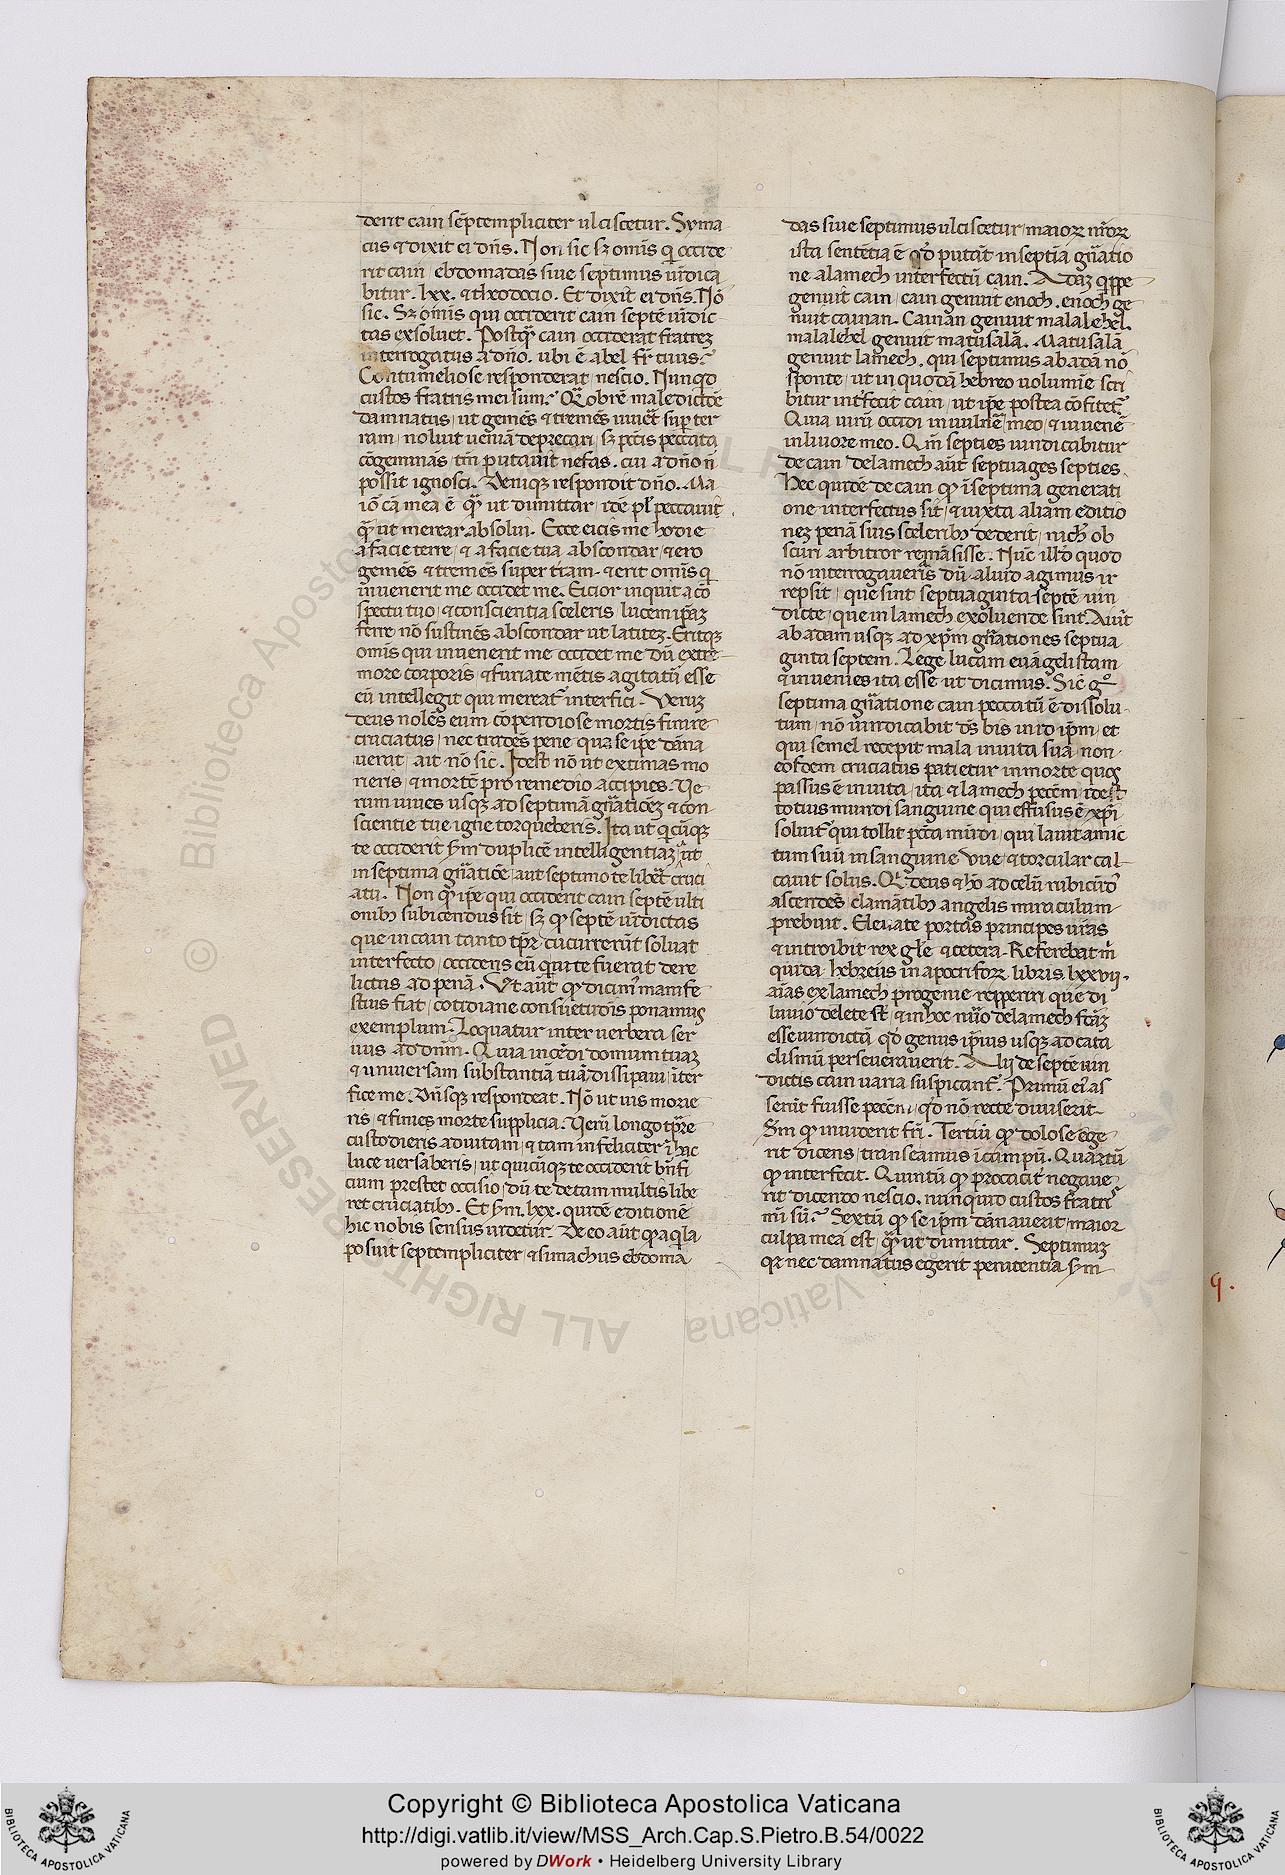 derit cain sēptempliciter ulciscetur. Syma
cus ⁊ dixit ei dn̄s. Non sic sꝫ om̄is q̇ occide
rit cain / ebdomadas siue septimus uīdica
bitur. lxx. ⁊ theodocio. Et dixit ei dn̄s. Nō
sic. Sꝫ om̄is qui occiderit cain septē uīdic
tas exsoluet. Postq̄ cain occiderat fratrēꝫ
interrogatus a dn̄o. ubi ē abel fr̄ tuus?
Contumeliose responderat / nescio. Nunqd
custos fratris mei sum? Q̄obrē maledictōe
damnatus / ut gemēs ⁊ tremēs uiuēt sup̄ ter
ram / noluit ueniā deprecari / sꝫ pctīs peccata
cōgeminās / tm̄ putauit nefas. cui a dn̄o n̄
possit ignosci. Deniqꝫ respondit dn̄o. Ma
ior̄ cā mea ē q̄ ut dimittar / idē pl̄ peccauit
q̄ ut merear absolui. Ecce eicis me hodie
a facie terre / ⁊ a facie tua abscondar / ⁊ ero
gemēs ⁊ tremēs super tr̄am ⁊ erit om̄is q̇
inuenerit me occidet me. Eicior inquit a cō
spectu tuo / ⁊ conscientia sceleris lucem ip̄aꝫ
ferre nō sustinēs abscondar ut latiteꝫ. Eritqꝫ
om̄is qui inuenerit me occidet me dū extre
more corporis / ⁊ furiate mētis agitatū esse
eū intellegit qui mereat̄ interfici. Veruꝫ
deus nolēs eum cōpendiose mortis finire
cruciatus / nec tradēs pene qua se ip̄e dāna
uerat / ait nō sic. Idest nō ut extimas mo
rieris / ⁊ mortē pro remedio accipies. Ue
rum uiues usqꝫ ad septimā gn̄atiōeꝫ ⁊ con
scientie tue igne torqueberis. Ita ut qcūqꝫ
te occiderit sm̄ duplicē intelligentiaꝫ / ut
in septima gn̄atiōe / aut septimo te liberet cruci
atu. Non q̇ ip̄e qui occiderit cain septē ulti
onibꝫ subiciendus sit / sꝫ q̇ septē uīdictas
que in cain tanto tpr̄e cucurrerūt soluat
interfector / occidens eū qui uite fuerat dere
lictus ad penā. Ut aūt q̇ dicim̄ manife
stius fiat / cotidiane consuetudīs ponamꝰ
exemplum. Loquatur inter uerbera ser
uus ad dn̄m. Quia incēdi domum tuaꝫ
⁊ uniuersam substantiā tuā dissipaui / iter
fice me. Dn̄sqꝫ respondeat. Nō ut uis morie
ris / ⁊ finies morte supplicia. Uerū longo tpr̄e
custodieris ad uitam / ⁊ tam infeliciter ī hac
luce uersaberis / ut quicūqꝫ te occiderit bn̄fi
cium prestet occisio / dū te de tam multis libe
ret cruciatibꝫ. Et sm̄. lxx. quidē editionē
hic nobis sensus uidetur. De eo aūt q̇ aq̇la
posuit septempliciter / ⁊ simachus ebdoma
das siue septimus ulciscetur / maioꝝ nr̄oꝝ
ista sentētia ē qd putāt in septīa gn̄atio
ne a lamech interfectū cain. Adaꝫ q̇ppe
genuit cain / cain genuit enoch. enoch ge
nuit cainan. Cainan genuit malalehel.
malalehel genuit matusalā. Matusalā
genuit lamech. qui septimus ab adā nō
sponte / ut in quodā hebreo uolumīe scri
bitur interfecit cain / ut ip̄e postea cōfitet̄.
Quia uirū occidi in uulnē meo / ⁊ iuuenē
in liuore meo. Qm̄ septies uindicabitur
de cain de lamech aūt septuages septies.
Hec quidē de cain q̇ ī septima generati
one interfectus sit / ⁊ iuxta aliam editio
neꝫ penā suis sceleribꝫ dederit / nichil ob
scuri arbitror remāsisse. Nūc illd̄ quod
nō interrogaueris dū aliud agimus ir
repsit / que sint septuaginta septē uin
dicte / que in lamech exoluende sint. Aiūt
ab adam usqꝫ ad xp̄m gn̄ationes septua
ginta septem. Lege lucam euāgelistam
⁊ inuenies ita esse ut dicimus. Sic̄ gᵒ
septima gn̄atione cain peccatū ē dissolu
tum / nō uindicabit ds̄ bis in id ip̄m / et
qui semel recepit mala in uita sua non
eosdem cruciatus patietur in morte quos
passus ē in uita / ita ⁊ lamech peccm̄ / idest
totius mundi sanguine qui effusus ē xp̄i
soluit̄ qui tollit pctā mūdi / qui lauit amic
tum suū in sanguine uue / ⁊ torcular cal
cauit solus. Q̄ deus ⁊ hō ad celū rubicūdꝰ
ascendēs clamātibꝫ angelis miraculum
prebuit. Eleuate portas principes ur̄as
⁊ introibit rex gl̄e ⁊ cetera. Referebat m̄
quidā hebreus in apocrifoꝝ libris. lxxvii.
aīas ex lamech progenie repperiri que di
luuio delete st̄ / ⁊ in hoc nūo de lamech fcāꝫ
esse uindictā qd genus ip̄ius usqꝫ ad cata
clismū perseuerauerit. Alij de septē uin
dictis cain uaria suspicant̄. Primū eī as
serūt fuisse peccm̄ / qd nō recte diuiserit.
Sm̄ q̇ inuiderit fr̄i. Tertiū q̇ dolose ege
rit dicens / transeamus ī campū. Quartū
q̇ interfecit. Quintū q̇ procacit̄ negaue
rit dicendo nescio. nunquid custos fratrꝭ
mi sū? Sextū q̇ se ip̄m dānauerit / maior
culpa mea est q̄ ut dimittar. Septimuꝫ
qꝛ nec damnatus egerit penitentia sm̄
g.
ALL RIGHTS RESERVED © Biblioteca Apostolica Vaticana
BIBLIOTECA APOSTOLICA VATICANA
Copyright © Biblioteca Apostolica Vaticana
http://digi.vatlib.it/view/MSS_Arch.Cap.S.Pietro.B.54/0022
powered by DWork • Heidelberg University Library
BIBLIOTECA APOSTOLICA VATICANA